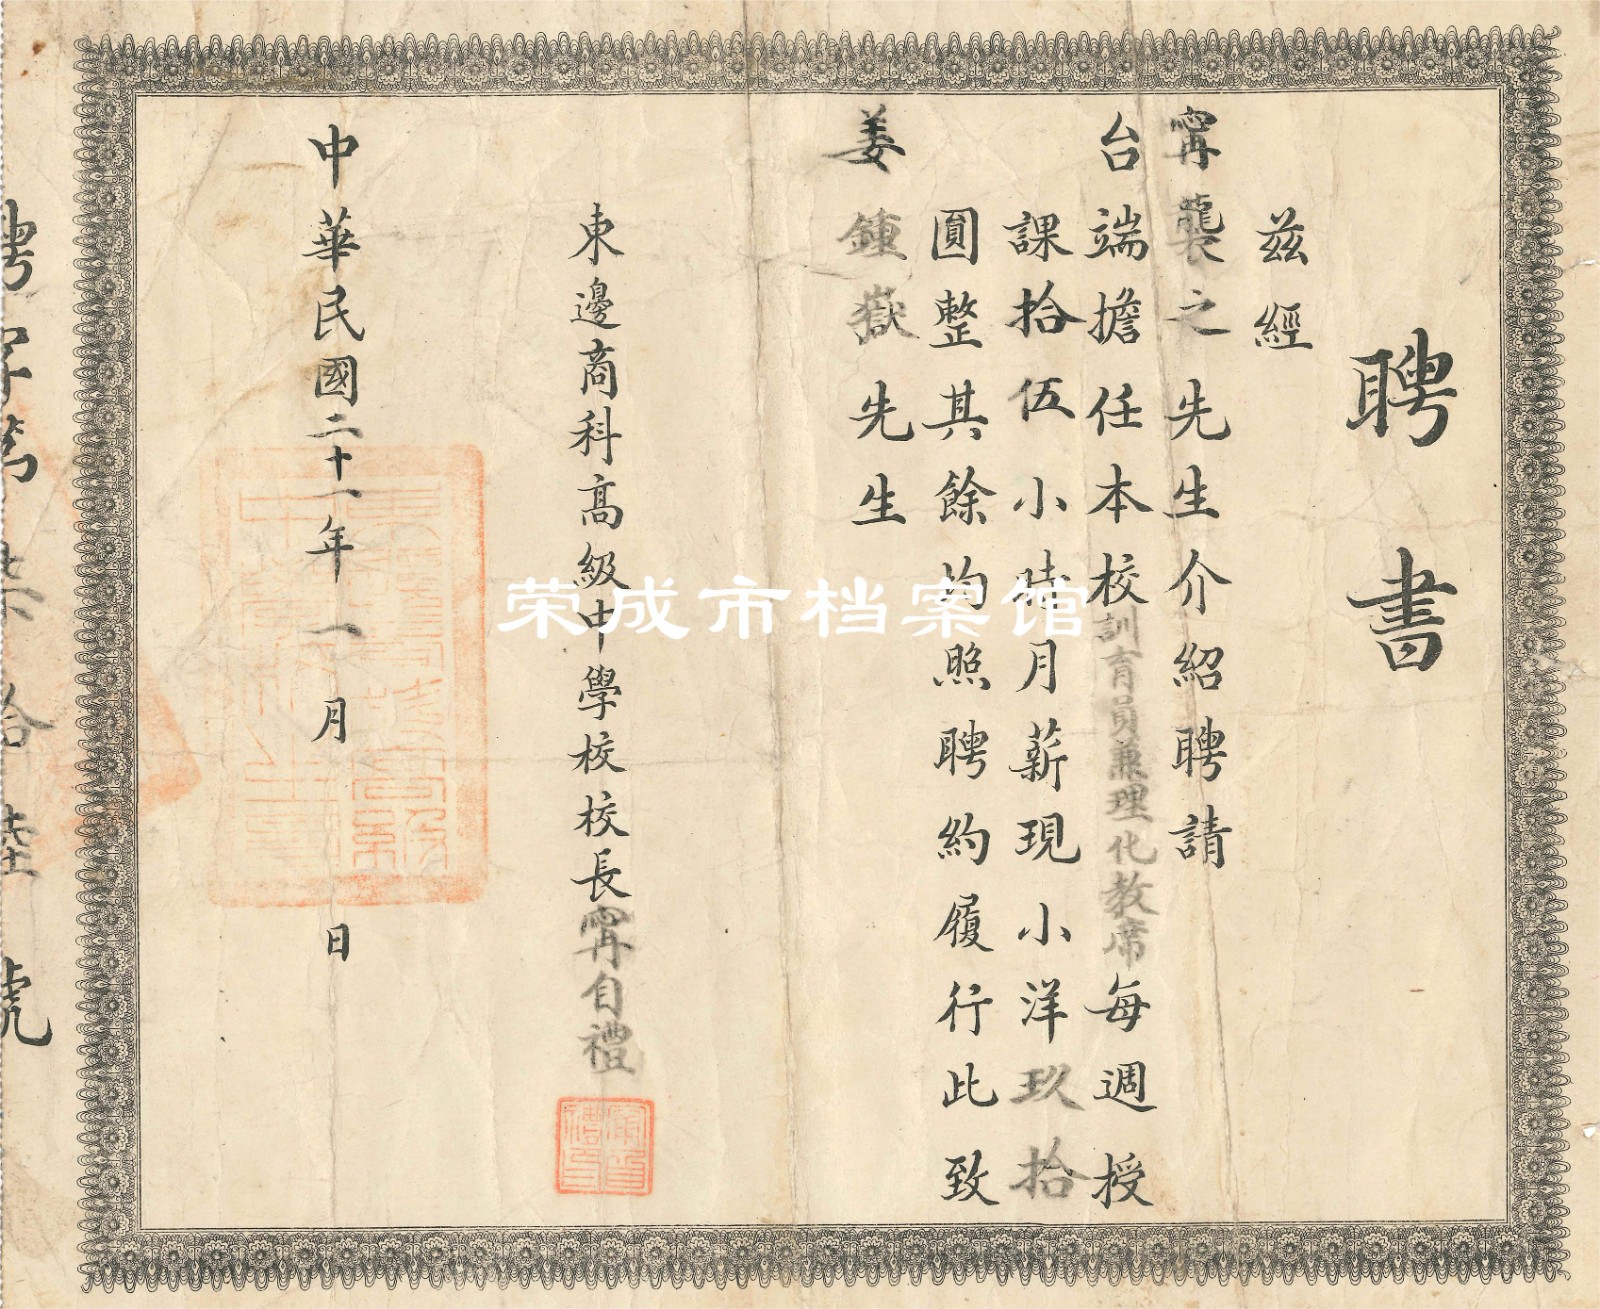 聘書
茲經
甯襲之先生介紹聘請
台端擔任本校訓育員兼理化教席每週授
課拾伍小時月薪現小洋玖拾
圓整其餘均照聘約履行此致
姜鍾嶽先生
東邊商科高級中學校校長甯自禮
中華民國二十一年一月 日
聘字第柒拾陸號
荣成市档案馆